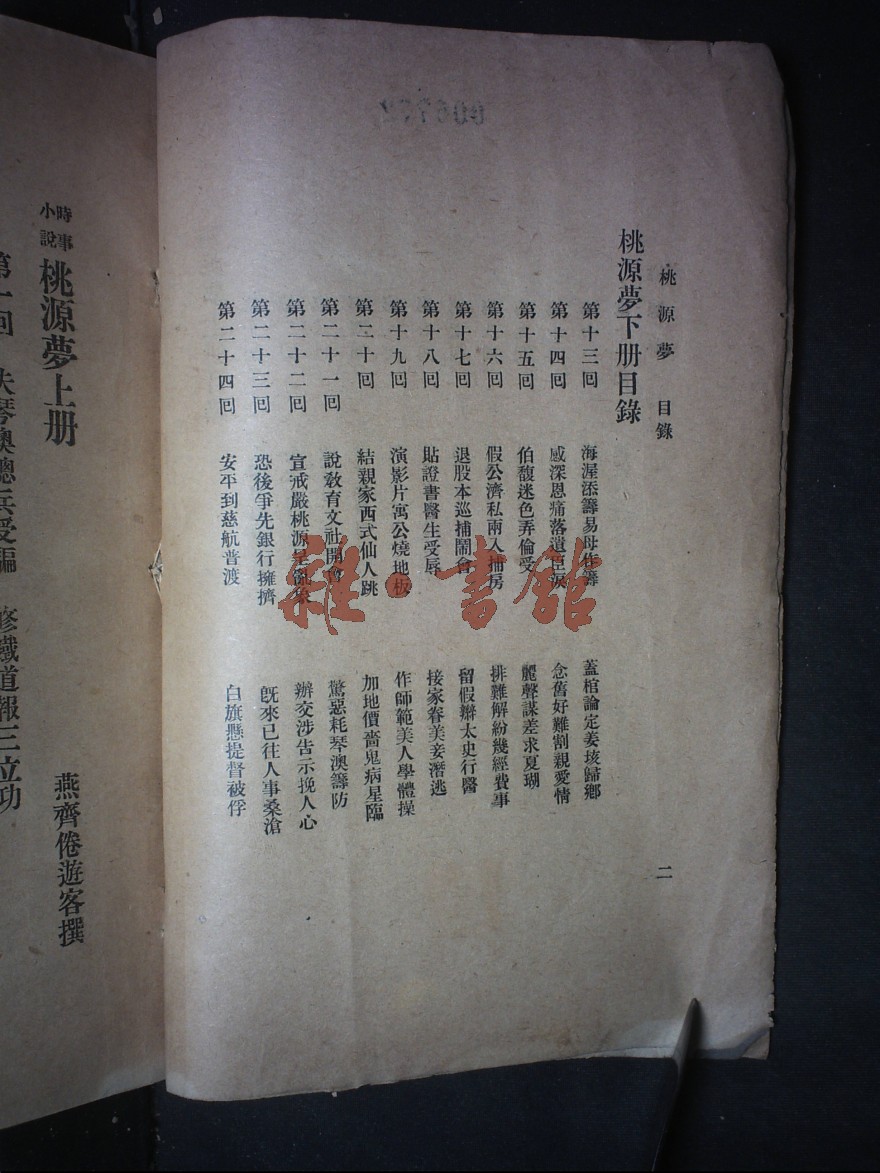 桃源夢 目錄 二
桃源夢下册目錄
第十三回 海渥添籌易母祝壽 蓋棺論定姜垓歸鄉
第十四回 感深恩痛落遺臣淚 念舊好難割親愛情
第十五回 伯馥迷色弄倫受 麗聲謀差求夏瑚
第十六回 假公濟私兩入捕房 排難解紛幾經費事
第十七回 退股本巡捕鬧會 留假辮太史行醫
第十八回 貼證書醫生受辱 接家眷美妾潛逃
第十九回 演影片寓公燒地板 作師範美人學體操
第二十回 結親家西式仙人跳 加地價嗇鬼病星臨
第二十一回 說教育文社開會 驚惡耗琴澳籌防
第二十二回 宣戒嚴桃源呈亂象 辦交涉告示挽人心
第二十三回 恐後爭先銀行擁擠 旣來已往人事桑滄
第二十四回 安平到慈航普渡 白旗懸提督被俘
時事小說 桃源夢上册
燕齊倦遊客撰
第一回 失琴澳總兵受騙 修鐵道報三立功
雜·書館